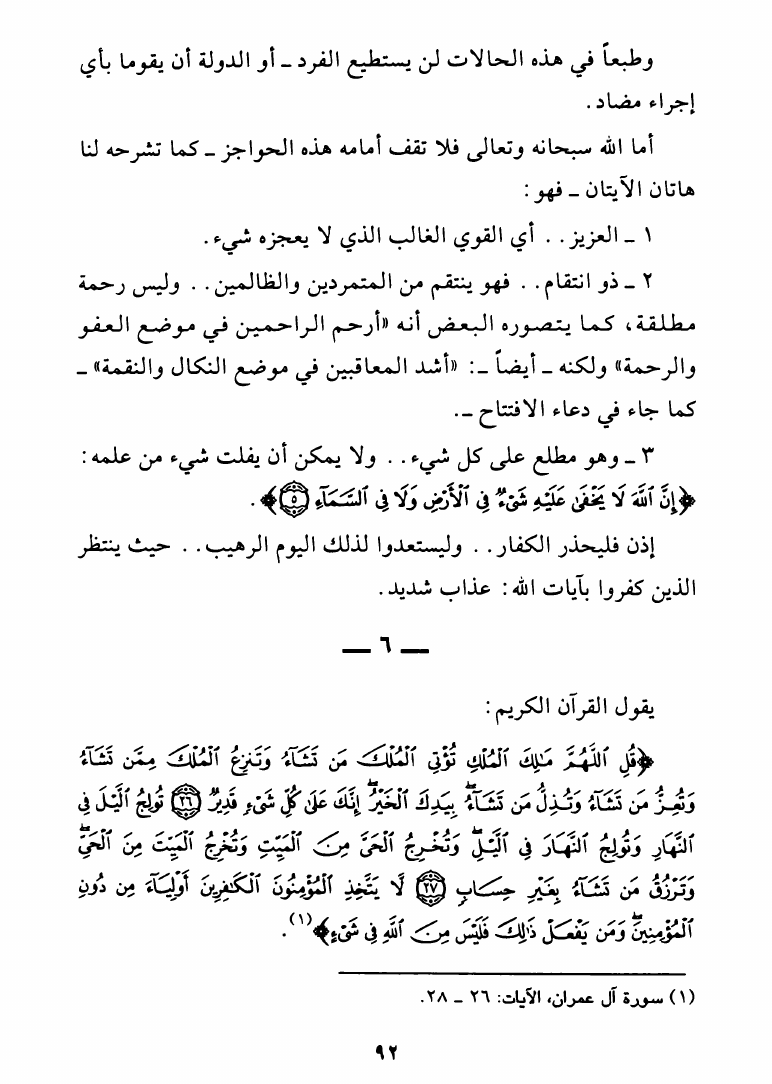 وطبعاً في هذه الحالات لن يستطيع الفرد ـ أو الدولة أن يقوما بأي
إجراء مضاد.
أما الله سبحانه وتعالى فلا تقف أمامه هذه الحواجز ـ كما تشرحه لنا
هاتان الآيتان ـ فهو:
١ ـ العزيز . . أي القوي الغالب الذي لا يعجزه شيء.
٢ ـ ذو انتقام . . فهو ينتقم من المتمردين والظالمين . . وليس رحمة
مطلقة، كما يتصوره البعض أنه «أرحم الراحمين في موضع العفو
والرحمة» ولكنه ـ أيضاً ـ: «أشد المعاقبين في موضع النكال والنقمة» ـ
كما جاء في دعاء الافتتاح ـ.
٣ ـ وهو مطلع على كل شيء . . ولا يمكن أن يفلت شيء من علمه:
﴿إِنَّ ٱللَّهَ لَا يَخْفَىٰ عَلَيْهِ شَىْءٌ فِى ٱلْأَرْضِ وَلَا فِى ٱلسَّمَآءِ ٥﴾.
إذن فليحذر الكفار . . وليستعدوا لذلك اليوم الرهيب . . حيث ينتظر
الذين كفروا بآيات الله: عذاب شديد.
ـ ٦ ـ
يقول القرآن الكريم:
﴿قُلِ ٱللَّهُمَّ مَـٰلِكَ ٱلْمُلْكِ تُؤْتِى ٱلْمُلْكَ مَن تَشَآءُ وَتَنزِعُ ٱلْمُلْكَ مِمَّن تَشَآءُ
وَتُعِزُّ مَن تَشَآءُ وَتُذِلُّ مَن تَشَآءُ ۖ بِيَدِكَ ٱلْخَيْرُ ۖ إِنَّكَ عَلَىٰ كُلِّ شَىْءٍ قَدِيرٌ ٢٦ تُولِجُ ٱلَّيْلَ فِى
ٱلنَّهَارِ وَتُولِجُ ٱلنَّهَارَ فِى ٱلَّيْلِ ۖ وَتُخْرِجُ ٱلْحَىَّ مِنَ ٱلْمَيِّتِ وَتُخْرِجُ ٱلْمَيِّتَ مِنَ ٱلْحَىِّ ۖ
وَتَرْزُقُ مَن تَشَآءُ بِغَيْرِ حِسَابٍ ٢٧ لَّا يَتَّخِذِ ٱلْمُؤْمِنُونَ ٱلْكَـٰفِرِينَ أَوْلِيَآءَ مِن دُونِ
ٱلْمُؤْمِنِينَ ۖ وَمَن يَفْعَلْ ذَٰلِكَ فَلَيْسَ مِنَ ٱللَّهِ فِى شَىْءٍ﴾(١).
(١) سورة آل عمران، الآيات: ٢٦ ـ ٢٨.
٩٢